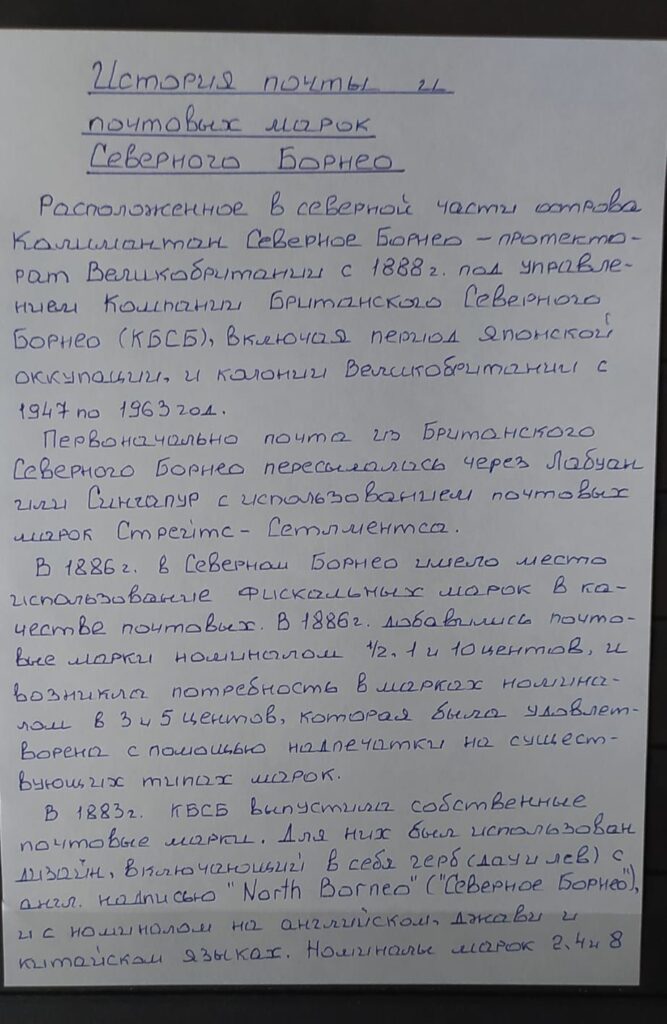 История почты и
почтовых марок
Северного Борнео
Расположенное в северной части острова
Калимантан Северное Борнео – протекто-
рат Великобритании с 1888 г. под управле-
нием Компании Британского Северного
Борнео (КБСБ), включая период Японской
оккупации, и колонии Великобритании с
1947 по 1963 год.
Первоначально почта из Британского
Северного Борнео пересылалась через Лабуан
или Сингапур с использованием почтовых
марок Стрейтс-Сетлментса.
В 1886 г. в Северном Борнео имело место
использование фискальных марок в ка-
честве почтовых. В 1886 г. добавились почто-
вые марки номиналом 1/2, 1 и 10 центов, и
возникла потребность в марках номина-
лом в 3 и 5 центов, которая была удовлет-
ворена с помощью надпечатки на сущест-
вующих типах марок.
В 1883 г. КБСБ выпустила собственные
почтовые марки. Для них был использован
дизайн, включающий в себя герб (дау и лев) с
англ. надписью "North Borneo" ("Северное Борнео"),
и с номиналом на английском, джави и
китайском языках. Номиналы марок 2, 4 и 8